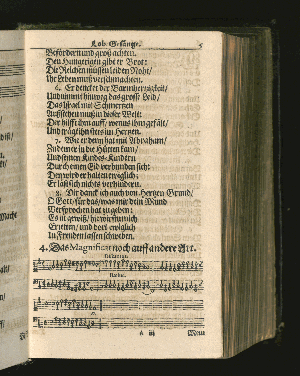 Lob-Gesänge. 5
Befördern und groß achten.
Den Hungerigen gibt er Brot:
Die Reichen müssen leiden Noht/
Ihr Leben muß verschmachten.
6. Er dencket der Barmhertzigkeit/
Und nimmt hinweg das grosse Leid/
Das Israel mit Schmertzen
Außstehen muß in dieser Welt:
Der hilfft ihm auff/ wenns ihm gefält/
Und trägt ihn stets im Hertzen.
7. Wie er denn hat mit Abraham/
Zu dem er in die Hütten kam/
Und seinen Kindes-Kindern
Durch einen Eid verbunden sich:
Den wird er halten ewiglich:
Er läst sich nichts verhindern.
8. Dir danck ich auch von Hertzen Grund/
O Gott für das/ was mir dein Mund
Versprochen hat zu geben:
Es ist gewiß/ hie wirst mich
Erretten/ und dort ewiglich
In Freuden lassen schweben.
4. Das Magnificat noch auff andere Art.
A iij Mein